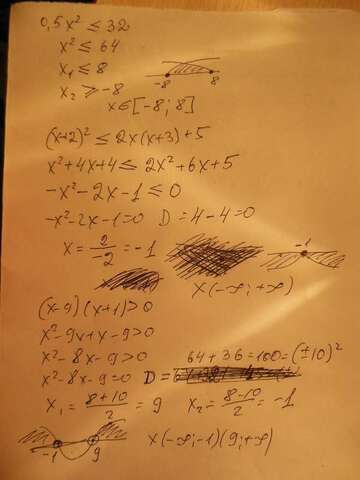 0,5x² ≤ 32
x² ≤ 64
x₁ ≤ 8
x₂ ≥ -8
-8 8
x∈[-8; 8]
(x+2)² ≤ 2x(x+3)+5
x²+4x+4 ≤ 2x²+6x+5
-x²-2x-1 ≤ 0
-x²-2x-1=0 D=4-4=0
x = 2/-2 = -1
-1
x(-∞;+∞)
(x-9)(x+1)>0
x²-9x+x-9>0
x²-8x-9>0
64+36=100=(±10)²
x²-8x-9=0 D=
x₁ = 8+10/2 = 9 x₂ = 8-10/2 = -1
-1 9
x(-∞;-1)(9;+∞)